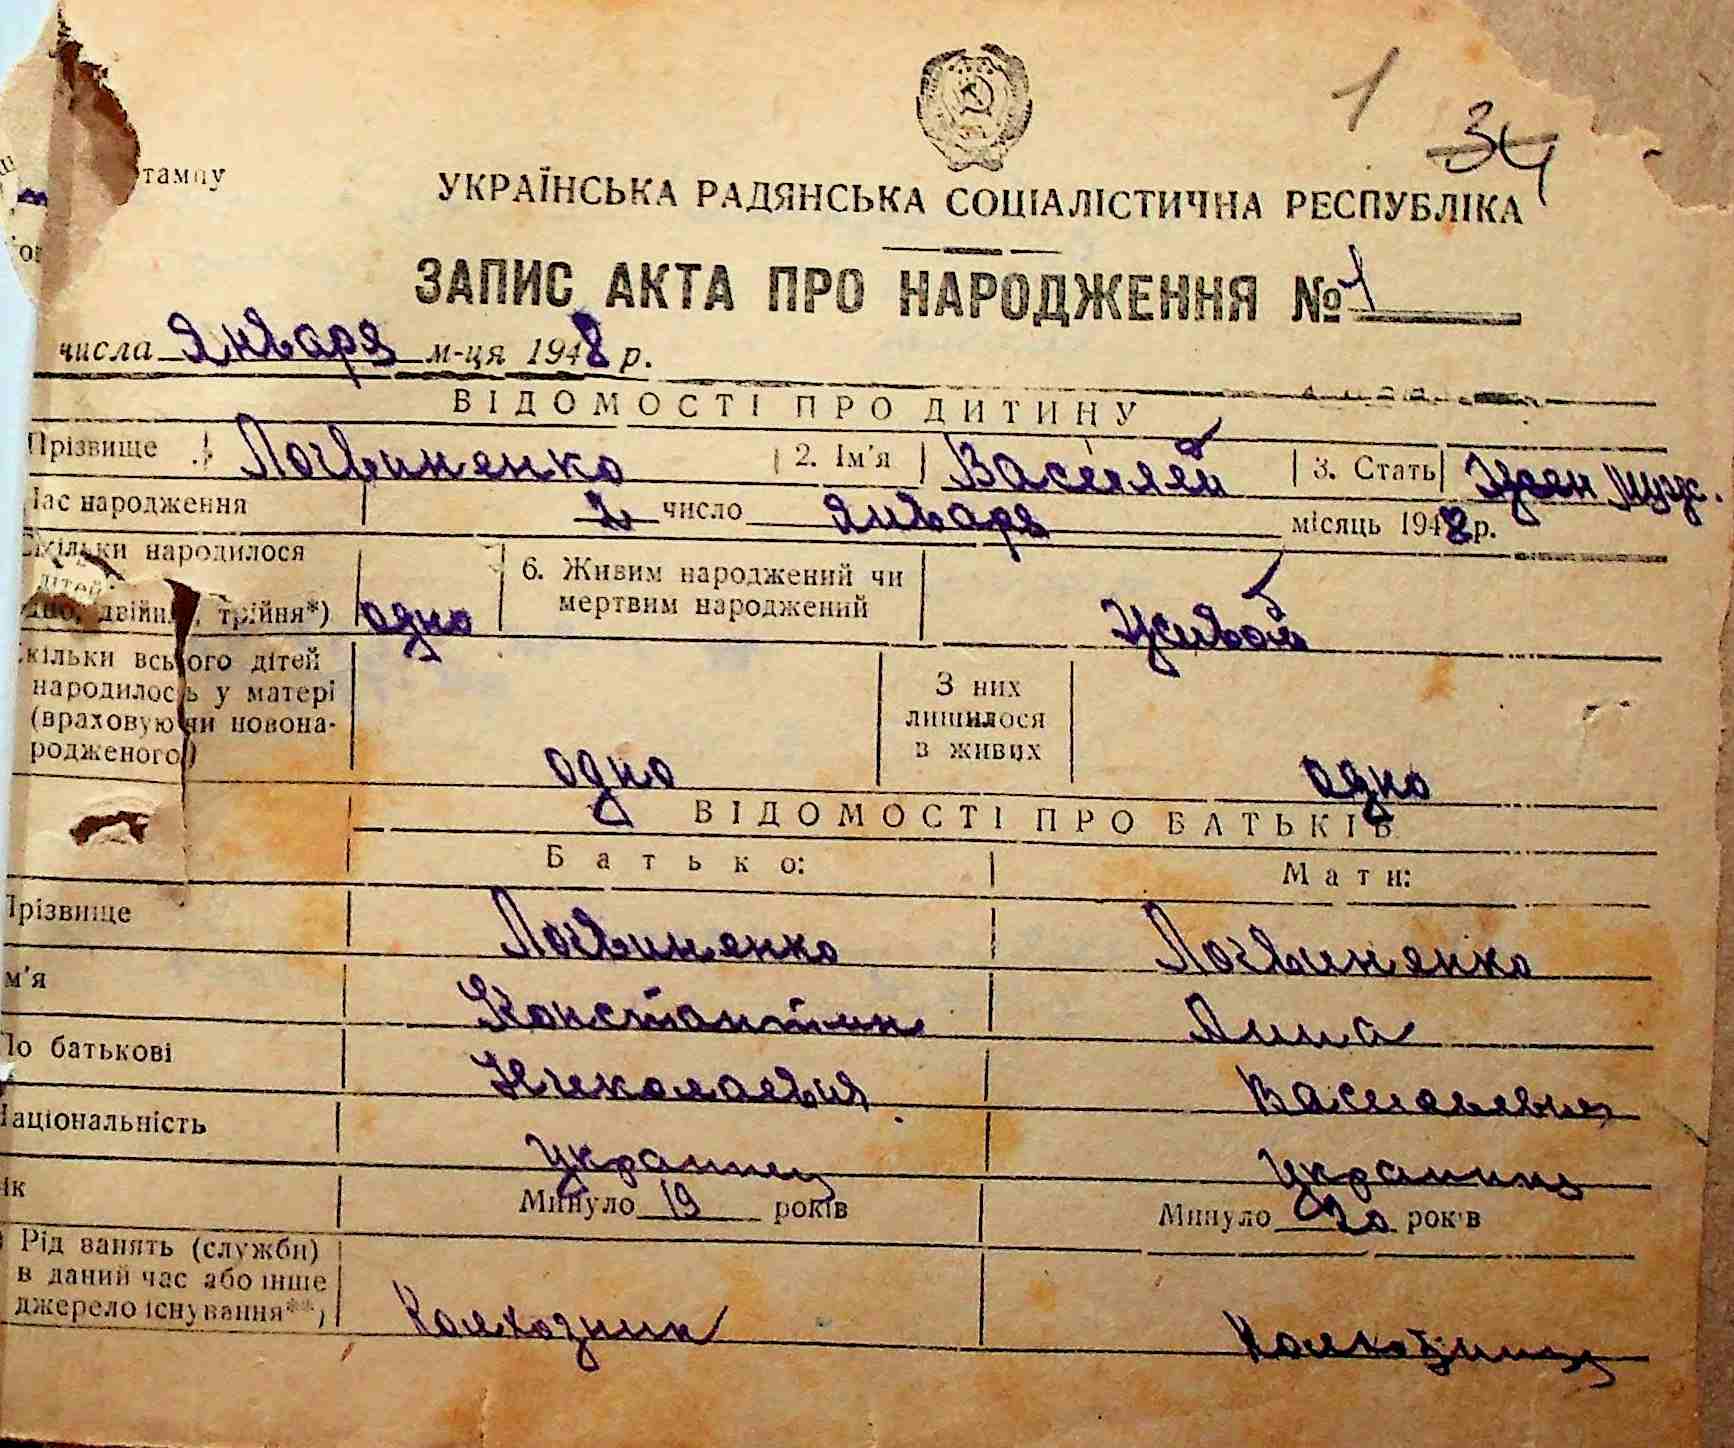 1
34
тампу
УКРАЇНСЬКА РАДЯНСЬКА СОЦІАЛІСТИЧНА РЕСПУБЛІКА
ЗАПИС АКТА ПРО НАРОДЖЕННЯ № 1
числа Января м-ця 1948 р.
ВІДОМОСТІ ПРО ДИТИНУ
Прізвище Логвиненко 2. Ім'я Василий 3. Стать муж.
Час народження 2 число января місяць 1948 р.
Скільки народилося
дітей
одно, двійня, трійня*) одно
6. Живим народжений чи
мертвим народжений Живой
Скільки всього дітей
народилось у матері
(враховуючи новона-
родженого) одно
З них
лишилося
в живих одно
ВІДОМОСТІ ПРО БАТЬКІВ
Батько: Мати:
Прізвище Логвиненко Логвиненко
м'я Константин Анна
По батькові Николаевич Васильевна
Національність украинец
ік Минуло 19 років Минуло 20 років
Рід занять (служби)
в даний час або інше
джерело існування**) Колхозник Колхозница